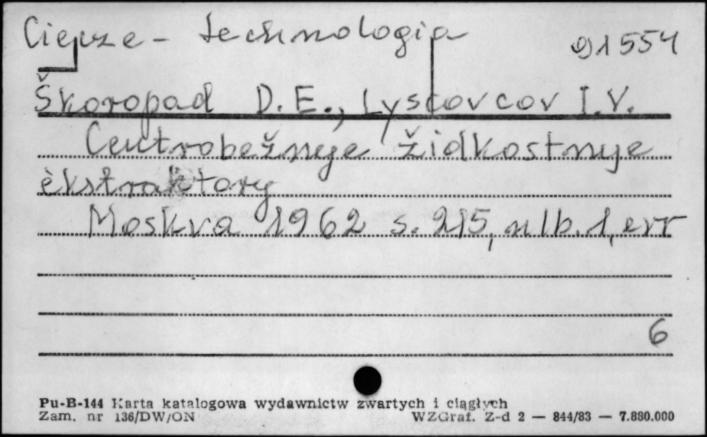 Ciecze - technologia 91554
Škoropad D.E., Lyscovcov I.V.
Centrobežnye židkostnye
èkstraktory
Moskva 1962 s. 215, nlb. 1, err
6
Pu-B-144 Karta katalogowa wydawnictw zwartych i ciągłych
Zam. nr 136/DW/ON WZGraf. Z-d 2 — 844/83 — 7.880.000